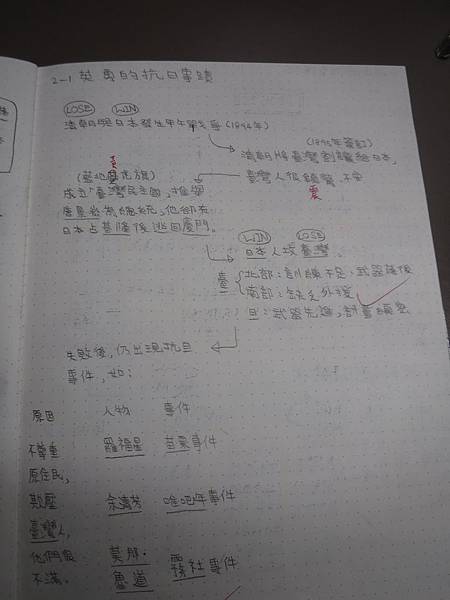 2-1 英勇的抗日事蹟
LOSE WIN
清朝與日本發生甲午戰爭(1894年)
(1895年簽訂)
清朝將臺灣割讓給日本,
臺灣人很 不安
震
黃
(藍地 虎旗)
成立「臺灣民主國」,推舉
唐景崧 總統,他卻在
日本占基隆後逃回廈門。
WIN LOSE
日本人攻臺灣。
臺
北部:訓練不足、武器落後
南部:缺乏外援
日:武器先進,計畫縝密
失敗後,仍出現抗日
事件,如:
原因 人物 事件
不尊重 羅福星 苗栗事件
原住民,
欺壓 余清芳 噍吧哖事件
臺灣人,
他們很 莫那· 霧社事件
不滿。 魯道